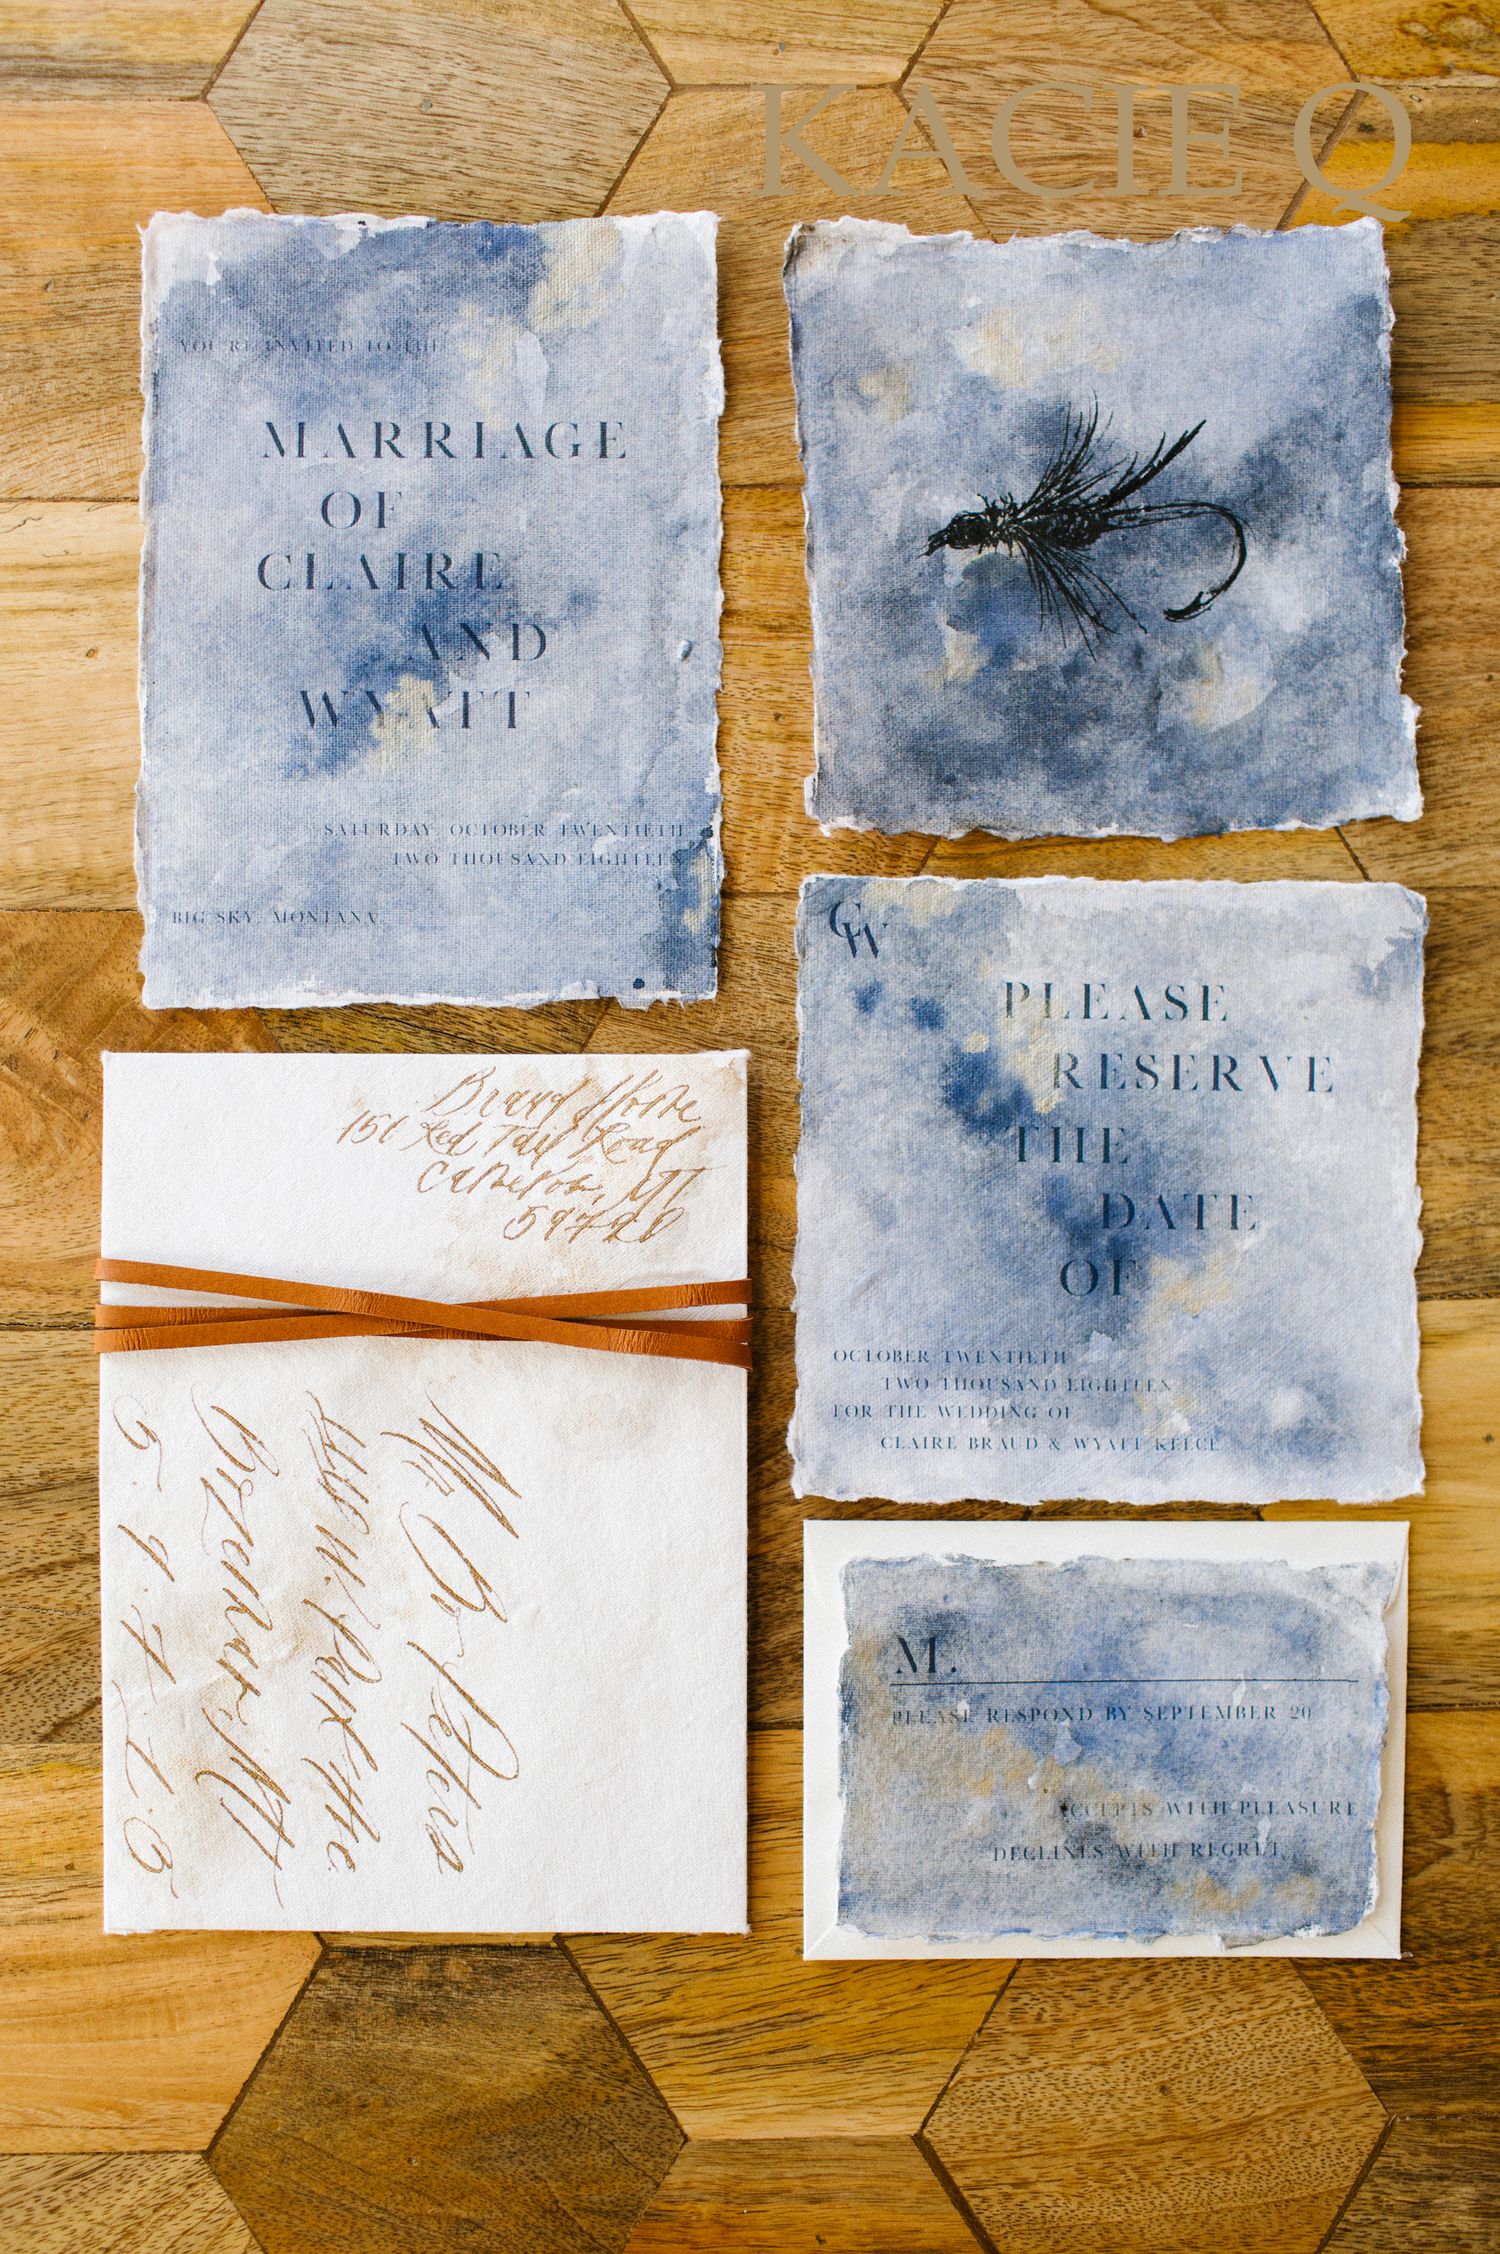 KACIE Q
YOU'RE INVITED TO THE
MARRIAGE
OF
CLAIRE
AND
WYATT
SATURDAY, OCTOBER TWENTIETH,
TWO THOUSAND EIGHTEEN
BIG SKY, MONTANA
CW
PLEASE
RESERVE
THE
DATE
OF
OCTOBER TWENTIETH
TWO THOUSAND EIGHTEEN
FOR THE WEDDING OF
CLAIRE BRAUD & WYATT KELCE
Red Tail Road
Cameron, MT
Mr. Peters
W. Park
Bozeman, MT
5.9.7.1.5
M.
PLEASE RESPOND BY SEPTEMBER 20
ACCEPTS WITH PLEASURE
DECLINES WITH REGRET